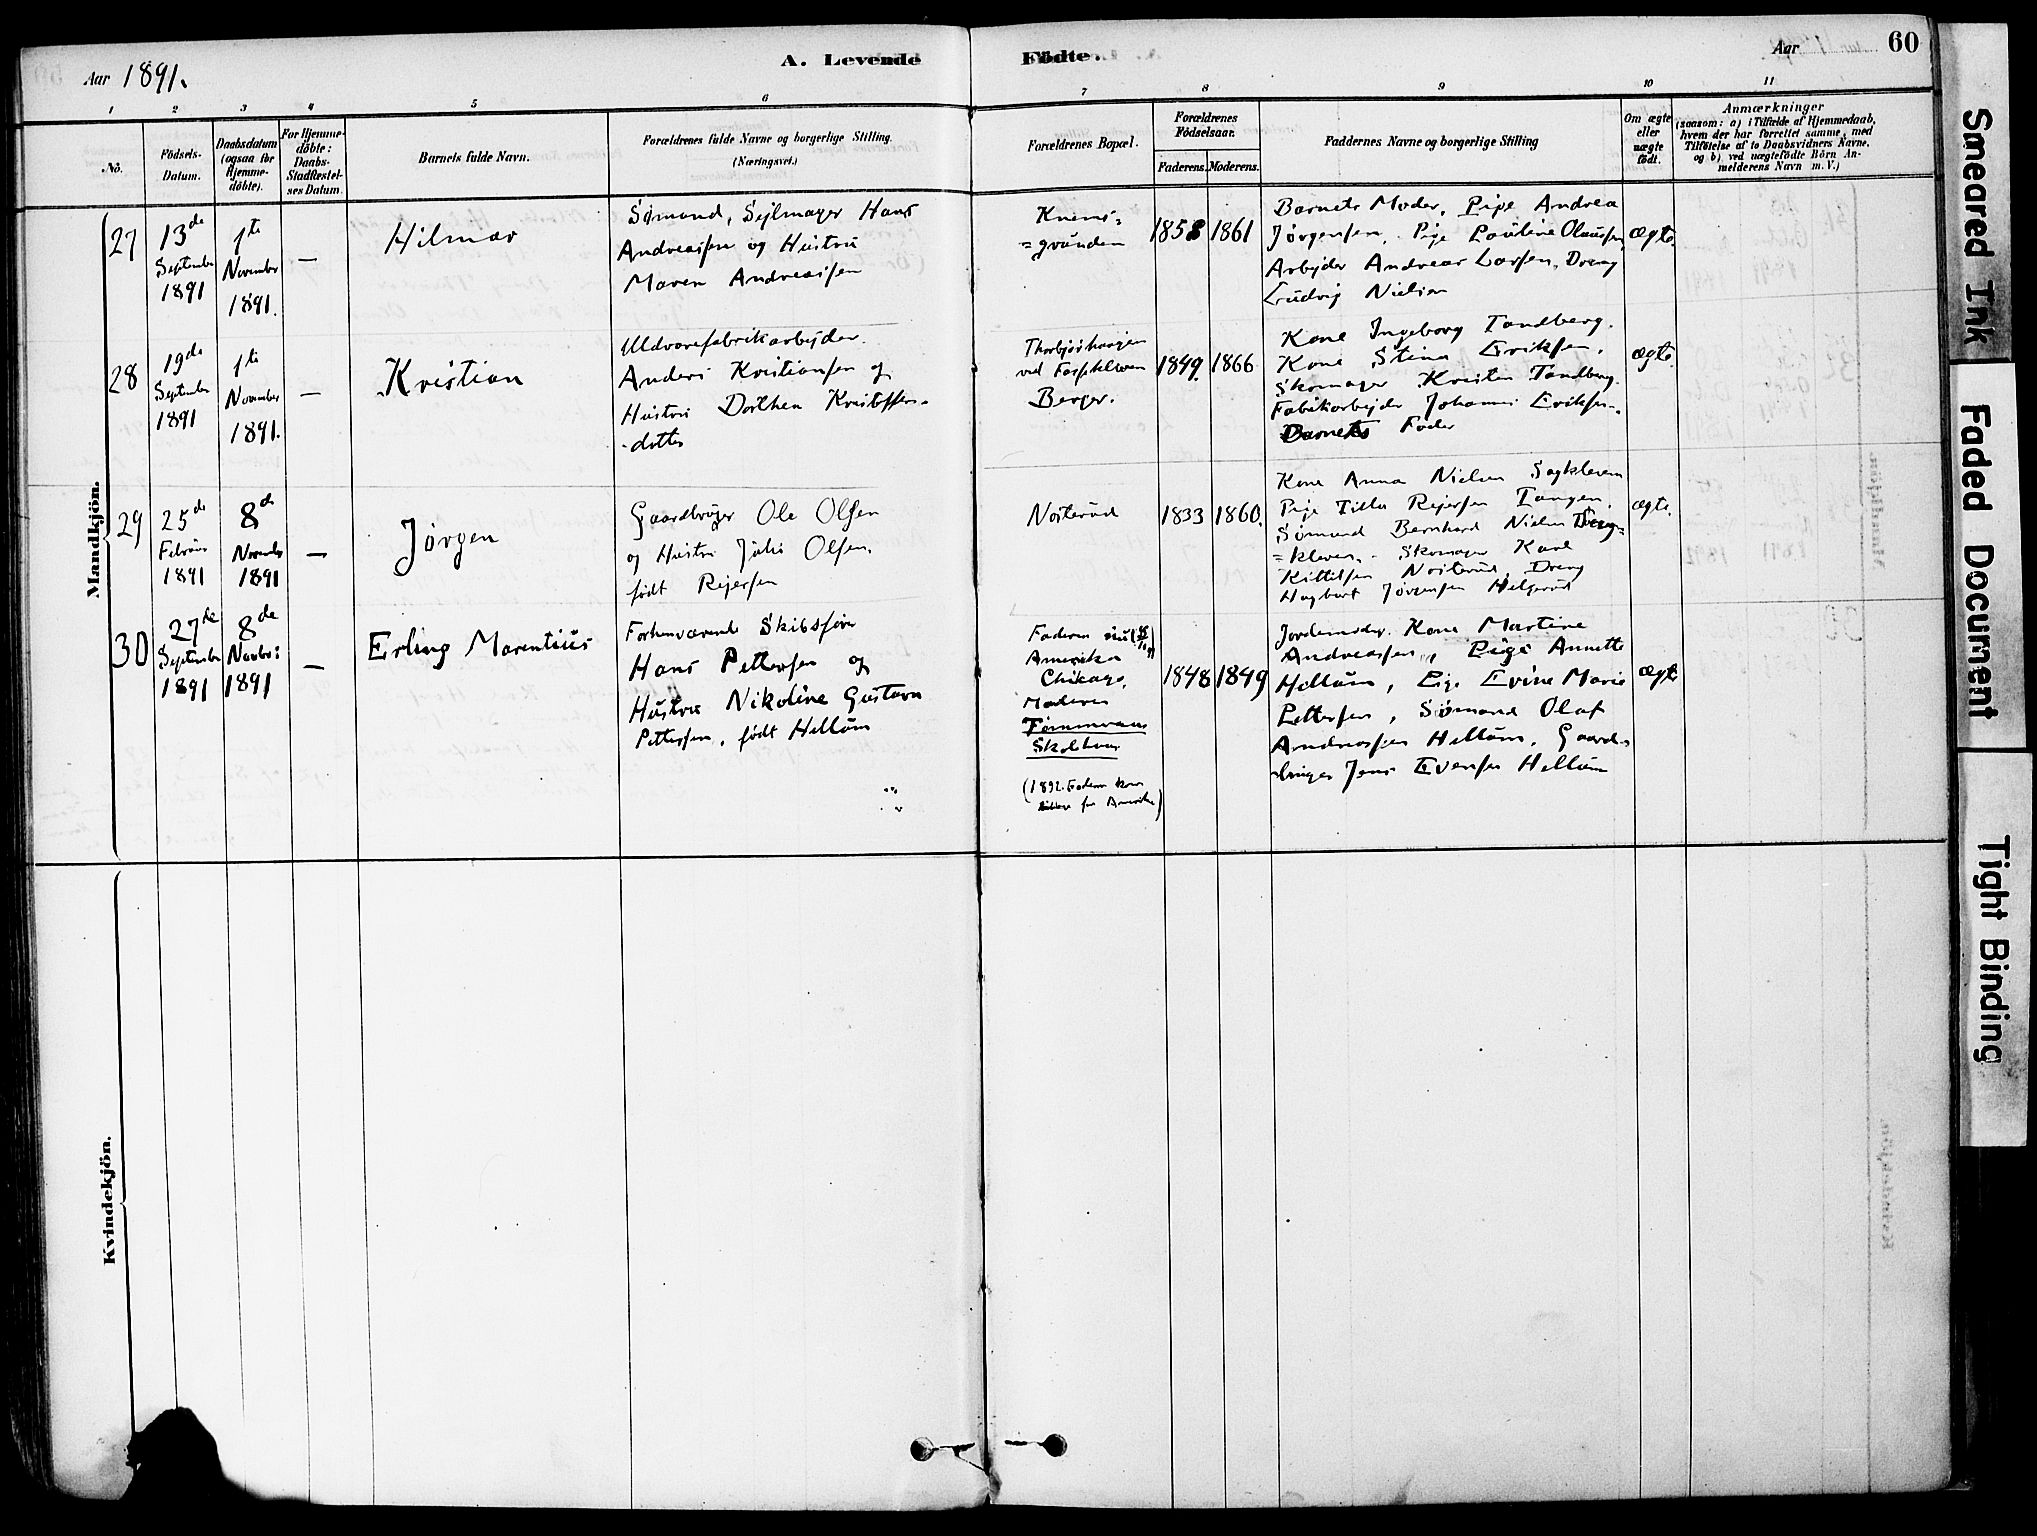 Aar 1891.
A. Levende
Födte.
Aar
60
1
2
3
4
5
6
7
8
9
10
11
No.
Födsels-
Datum.
Daabsdatum
(ogsaa for
Hjemme-
döbte).
For Hjemme-
döbte:
Daabs-
Stadfæstel-
ses Datum.
Barnets fulde Navn.
Forældrenes fulde Navne og borgerlige Stilling.
(Næringsvei.)
Forældrenes Bopæl.
Forældrenes
Födselsaar.
Faderens.
Moderens.
Faddernes Navne og borgerlige Stilling
Om ægte
eller
uægte
födt.
Anmærkninger
(saasom: a) i Tilfælde af Hjemmedaab,
hvem der har forrettet samme, med
Tilföielse af to Daabsvidners Navne,
og b) ved uægtefödte Börn An-
melderens Navn m. V.)
Mandkjön.
27
13de
September
1891
1ti
November
1891.
—
Hilmar
Sømand, Sejlmager Hans
Andreassen og Hustru
Maren Andreassen
Knems=
=grunden
1858
1861
Barnets Moder, Pige Andrea
Jørgensen, Pige Pauline Olaussen,
Arbejder Andreas Larsen, Dreng
Ludvig Nielsen
ægte
28
19de
September
1891
1ti
November
1891.
—
Kristian
Uldvarefabrikarbejder
Anders Kristiansen og
Hustru Dorthea Kristoffers-
-datter
ved
Berger.
1849.
1866
Kone Ingeborg Tandberg.
Kone Stina Eriksen,
Skomager Kristen Tandberg.
Fabrikarbejder Johannes Eriksen,
Barnets Fader
ægte.
29
25de
Februar
1891
8de
November
1891
—
Jørgen
Gaardbruger Ole Olsen
og Hustru Julie Olsen,
født Rejersen
Nosterud
1833
1860.
Kone Anna Nielsen Sagkleven
Pige Tilla Rejersen Tangen,
Sømand Bernhard Nielsen
=kleven, Skomager Karl
Kittilsen Nosterud, Dreng
Hagbart Jørgensen Helgerud
ægte.
30
27de
September
1891
8de
Novbr:
1891
—
Erling Marentius
Forhenværende Skibsfører
Hans Pettersen og
Hustru Nikoline Gustava
Pettersen, født Hellum
Faderen
Amerika
Chikago,
Moderen
(1892. Faderen kom
fra Amerika)
1848
1849
Jordemoder, Kone Martine
Andreassen, Pige Annette
Hellum, Pige Evine Marie
Pettersen, Sømand Olaf
Andreassen Hellum, Gaard-
bruger Jens Evensen Hellum
ægte
Kvindekjön.
Smeared Ink
Faded Document
Tight Binding